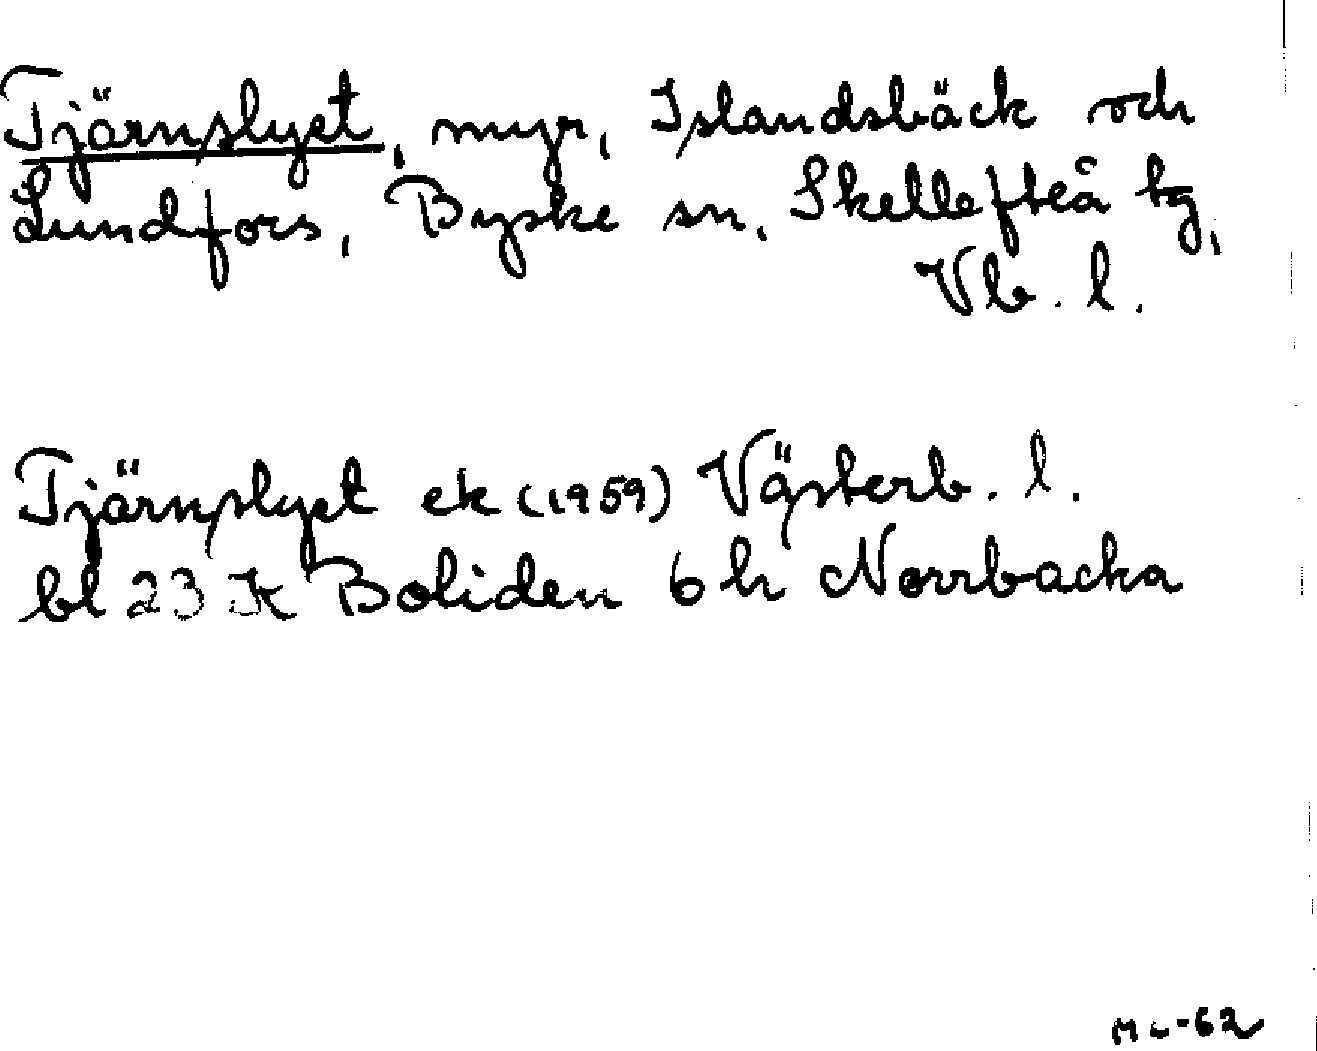 Tjärnslyet, myr, Islandsbäck och
Lundfors, Byske sn, Skellefteå tg,
Vb. l.
Tjärnslyet ek (1959) Västerb. l.
bl 23 K Boliden 6 h Norrbacka
-62